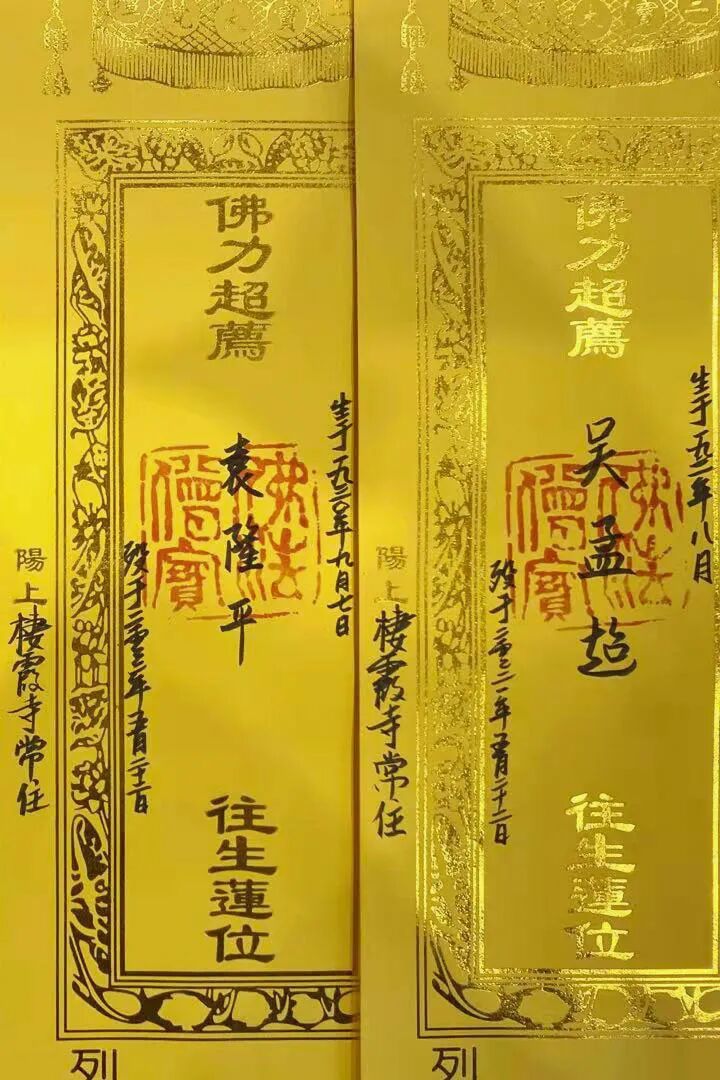 佛力超薦
生于一九三〇年九月七日
袁隆平
佛法僧寶
殁于二零二一年五月二十二日
往生蓮位
陽上棲霞寺常住
列
佛力超薦
生于一九二二年八月
吴孟超
佛法僧寶
殁于二零二一年五月二十二日
往生蓮位
陽上棲霞寺常住
列